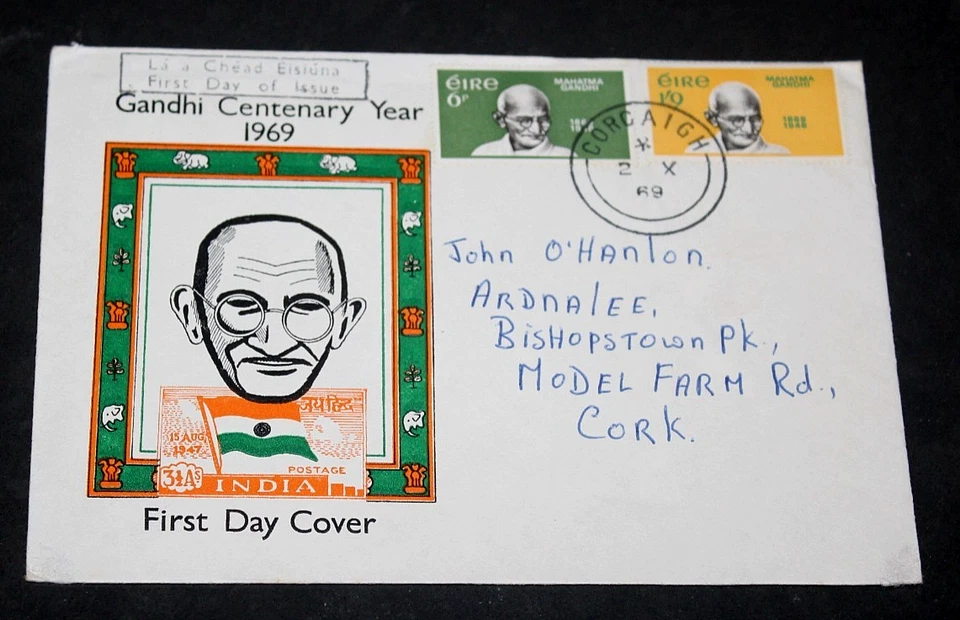 Lá a Chéad Eisiúna
First Day of Issue
Gandhi Centenary Year
1969
éIRe
6P
MAHATMA
GANDHI
éIRe
1'9
MAHATMA
GANDHI
1869
1948
CORCAIGH
2 X
69
John O'Hanlon.
ARDNALEE,
BISHOPSTOWN PK.,
MODEL FARM Rd.,
CORK.
जय हिन्द
15 AUG
1947
3½AS
POSTAGE
INDIA
First Day Cover